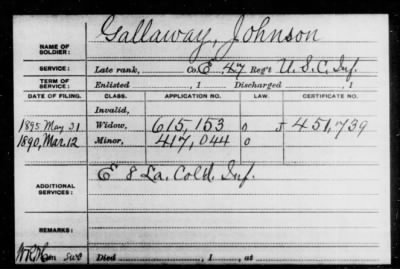 Gallaway, Johnson
NAME OF SOLDIER:
SERVICE: Late rank, Co. E. 47 Reg't U.S.C. Inf.
TERM OF SERVICE: Enlisted , 1 Discharged , 1
DATE OF FILING. CLASS. APPLICATION NO. LAW. CERTIFICATE NO.
Invalid,
1895 May 31 Widow, 615,153 0 J 451,739
1890, Mar. 12 Minor, 417,044 0
E 8 La. Cold. Inf.
ADDITIONAL SERVICES:
REMARKS:
Died , 1 , at